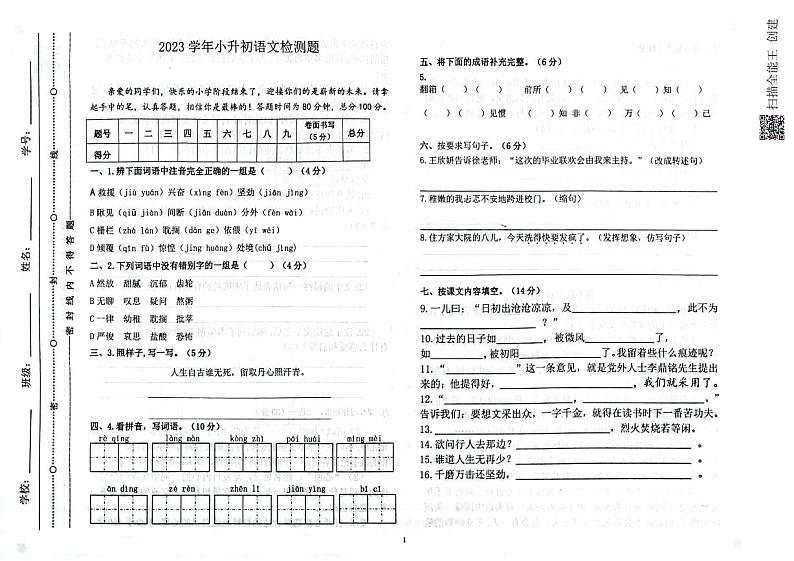 2023 学年小升初语文检测题
亲爱的同学们，快乐的小学阶段结束了，迎接你们的是崭新的未来。请拿
起手中的笔，认真答题，相信你是最棒的！答题时间为 80 分钟，总分 100 分。
题号 一 二 三 四 五 六 七 八 九 卷面书写（5分） 总分
得分
一、1. 辨下面词语中注音完全正确的一组是（ ）（4分）
A 救援（jiù yuán）兴奋（xīng fèn）坚劲（jiān jìng）
B 眼见（qiū jiàn）间断（jiān duàn）分外（fèn wài）
C 栅栏（zhà lán）耽搁（dān ge）依偎（yī wēi）
D 倾覆（qīn fù）惊惶（jīng huáng）处境（chǔ jìng）
二、2. 下列词语中没有错别字的一组是（ ）（4分）
A 然放 甜腻 沉郁 齿轮
B 无聊 叹息 疑问 熬粥
C 一律 幼稚 耽搁 批苹
D 严俊 哀思 盐酸 恐怖
三、3. 照样子，写一写。（5分）
人生自古谁无死，留取丹心照汗青。
四、4. 看拼音，写词语。（10分）
rè qíng làng màn kōng zhì pái huái míng mèi
ān dìng zé rèn zhēn lǐ jiān yìng bǐ cǐ
学校：
班级：
姓名：
学号：
密 封 线
密封线内不得答题
五、将下面的成语补充完整。（6分）
5.
翻箱（ ）（ ） 前所（ ）（ ） 见（ ）见（ ）
（ ）（ ）见惯 （ ）知非（ ） 万（ ）（ ）己
六、按要求写句子。（6分）
6. 王欣妍告诉徐老师：“这次的毕业联欢会由我来主持。”（改成转述句）
7. 稚嫩的我忐忑不安地跨进校门。（缩句）
8. 住方家大院的八儿，今天洗得快要发疯了。（发挥想象，仿写句子）
七、按课文内容填空。（14分）
9. 一儿曰：“日初出沧沧凉凉，及 ，此不为
？”
10. 过去的日子如 ，被微风 了，
如 ，被初阳 了。我留着些什么痕迹呢？
11. “ ”这一条意见，就是党外人士李鼎铭先生提出
来的；他提得好， ，我们就采用了。
12. “ ， ”。
告诉我们：要想文采出众，一字千金，就得在读书时下一番苦功夫。
13. ，烈火焚烧若等闲。
14. 欲问行人去那边？ 。
15. 谁道人生无再少？ 。
16. 千磨万击还坚劲， 。
1
扫描全能王 创建